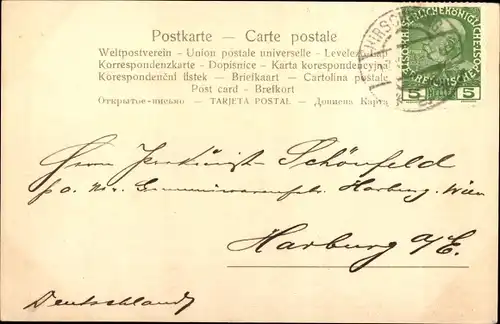 Postkarte — Carte postale
Weltpostverein - Union postale universelle - Levelező-Lap
Korrespondenzkarte - Dopisnice - Karta korespondencyjna
Korespondenční lístek - Briefkaart - Cartolina postale
Post card - Brefkort
Открытое-письмо — TARJETA POSTAL — Дописна Карта
5 5
Herrn Prokurist Schönfeld
p. a. Harburg, Wien
Harburg a/E.
Deutschland